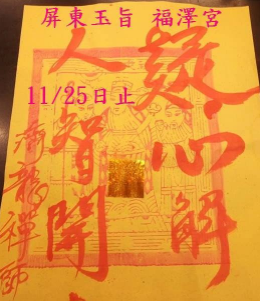 屏東玉旨 福澤宮
11/25日止
疑心解
人智開
濟龍禪師